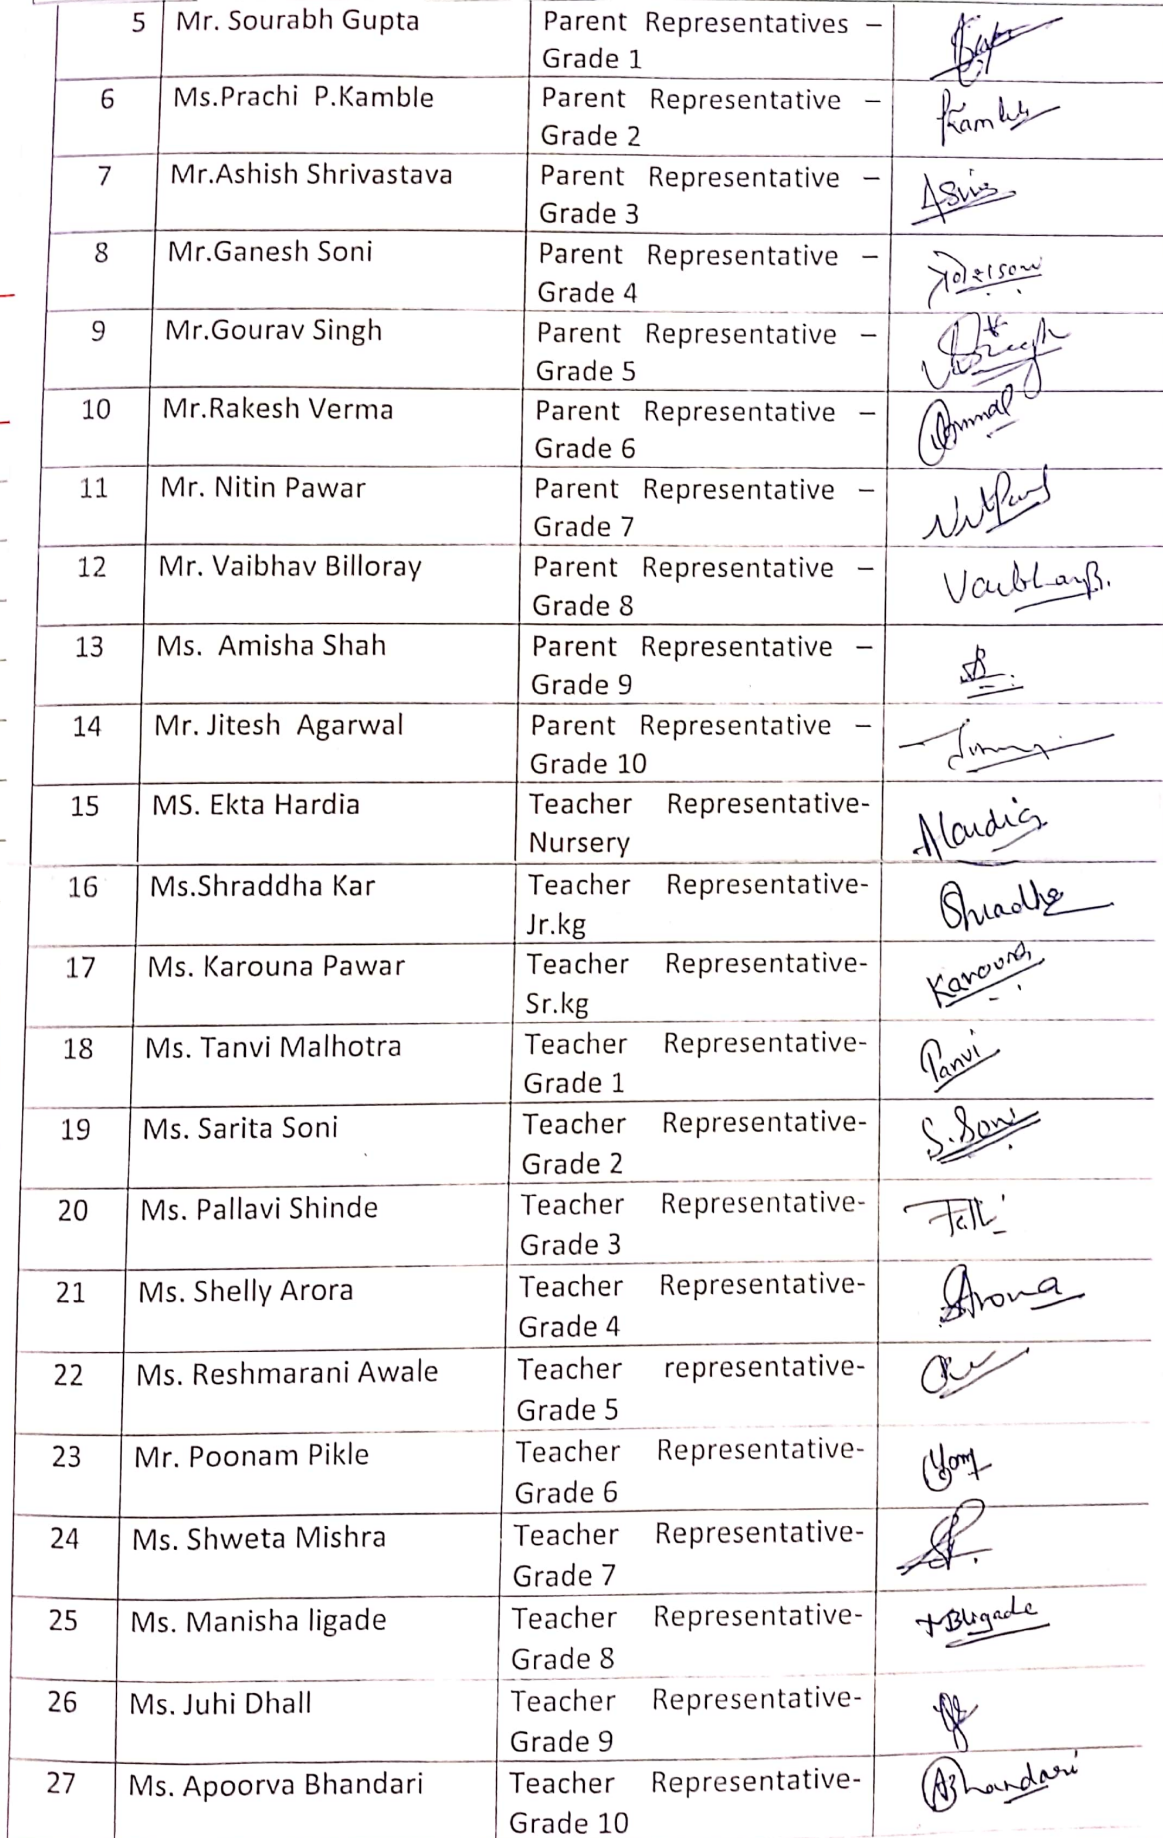 5 Mr. Sourabh Gupta Parent Representatives –
Grade 1
6 Ms.Prachi P.Kamble Parent Representative –
Grade 2 Kamble
7 Mr.Ashish Shrivastava Parent Representative –
Grade 3
8 Mr.Ganesh Soni Parent Representative –
Grade 4
9 Mr.Gourav Singh Parent Representative –
Grade 5
10 Mr.Rakesh Verma Parent Representative –
Grade 6
11 Mr. Nitin Pawar Parent Representative –
Grade 7
12 Mr. Vaibhav Billoray Parent Representative –
Grade 8 VaibhavB.
13 Ms. Amisha Shah Parent Representative –
Grade 9
14 Mr. Jitesh Agarwal Parent Representative –
Grade 10
15 MS. Ekta Hardia Teacher Representative-
Nursery
16 Ms.Shraddha Kar Teacher Representative-
Jr.kg
17 Ms. Karouna Pawar Teacher Representative-
Sr.kg Karouna
18 Ms. Tanvi Malhotra Teacher Representative-
Grade 1 Tanvi
19 Ms. Sarita Soni Teacher Representative-
Grade 2 S.Soni
20 Ms. Pallavi Shinde Teacher Representative-
Grade 3
21 Ms. Shelly Arora Teacher Representative-
Grade 4 SArora
22 Ms. Reshmarani Awale Teacher representative-
Grade 5
23 Mr. Poonam Pikle Teacher Representative-
Grade 6
24 Ms. Shweta Mishra Teacher Representative-
Grade 7
25 Ms. Manisha ligade Teacher Representative-
Grade 8
26 Ms. Juhi Dhall Teacher Representative-
Grade 9
27 Ms. Apoorva Bhandari Teacher Representative-
Grade 10 ABhandari